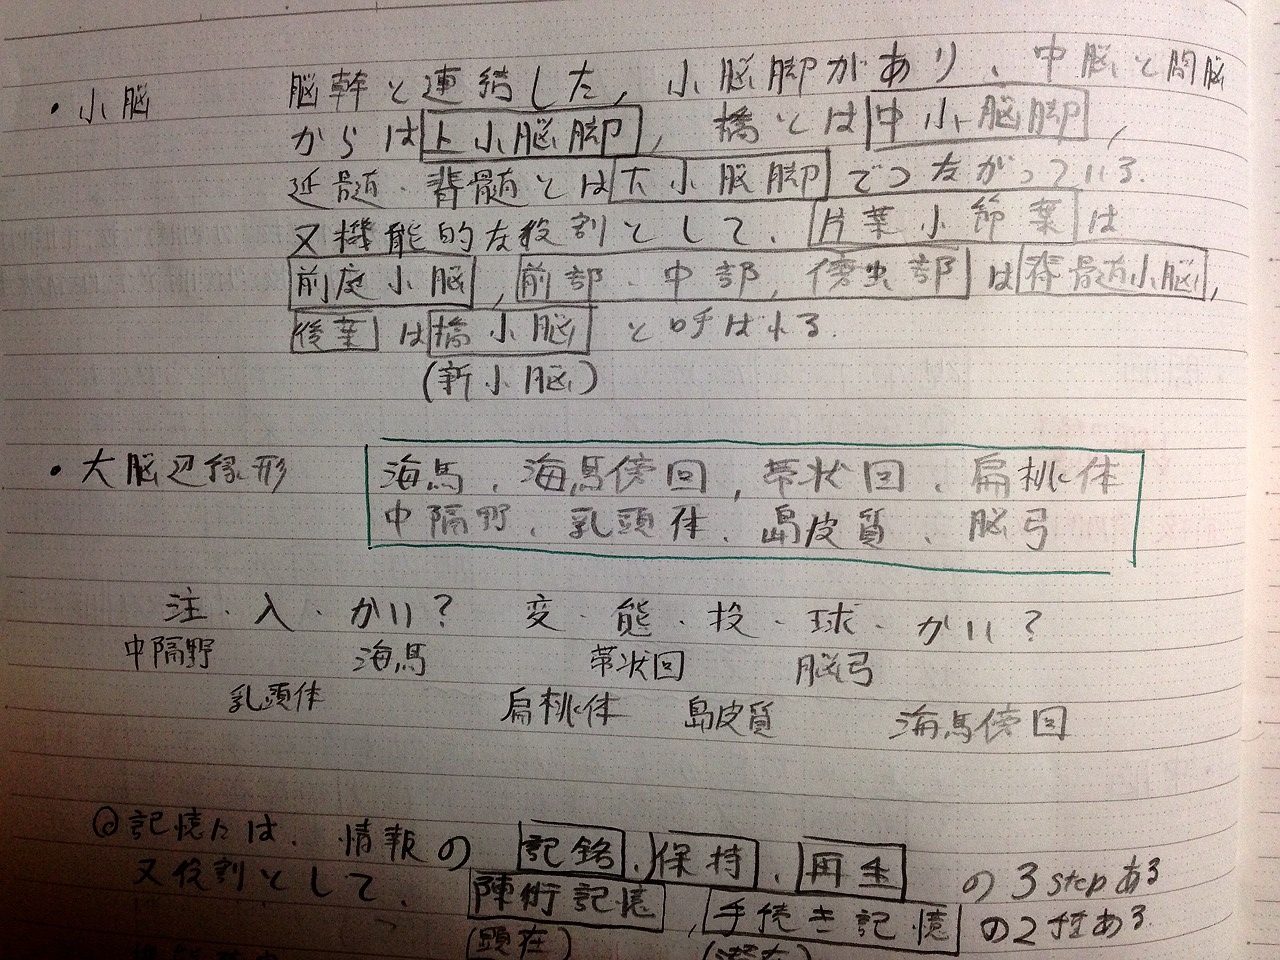 ・小脳 脳幹と連結した、小脳脚があり、中脳と間脳
からは上小脳脚、橋とは中小脳脚、
延髄・脊髄とは下小脳脚でつながっている.
又機能的な役割として、片葉小節葉は
前庭小脳、前部・中部、傍虫部は脊髄小脳,
後葉は橋小脳と呼ばれる.
(新小脳)
・大脳辺縁形 海馬、海馬傍回、帯状回、扁桃体
中隔野、乳頭体、島皮質、脳弓
注・入・かい? 変・態・投・球・かい?
中隔野 海馬 帯状回 脳弓
乳頭体 扁桃体 島皮質 海馬傍回
◎記憶には、情報の 記銘、保持、再生 の3stepある
又役割として、陳術記憶、手続き記憶の2種ある.
(顕在) (潜在)